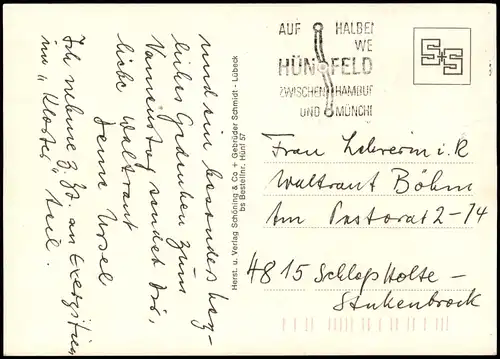 und ein besonders herz-
liches Gedenken zum
Namenstag sendet Dir,
liebe Waltraut
Deine Ursel
Ich nehme z. Zt. an Exerzitien
im "Kloster" teil.
Herst. u. Verlag Schöning & Co + Gebrüder Schmidt - Lübeck
bs Bestellnr. Hünf 57
AUF HALBEM
WE
HÜNFELD
ZWISCHEN HAMBUR
UND MÜNCH
S+S
Frau Lehrerin i. R
Waltraut Böhm
Am Pastorat 2-74
4815 Schloß Holte-
Stukenbrock